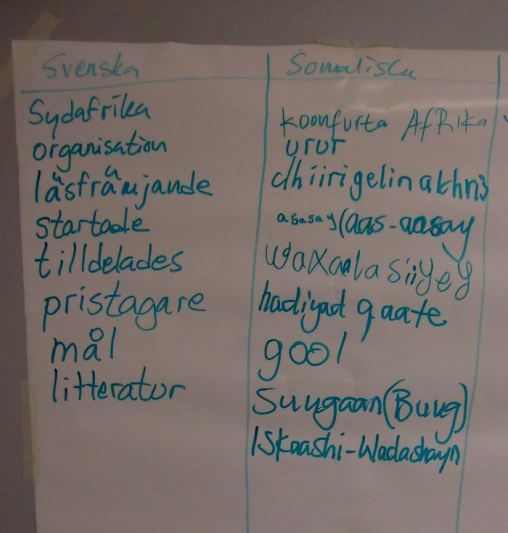 Svenska
Sydafrika
organisation
läsfrämjande
startade
tilldelades
pristagare
mål
litteratur
Somaliska
Koonfurta AfRika
urur
dhiirigelin akhris
asasay(aas-aasay
waxaala siiyey
hadiyad qaate
gool
Suugaan(Buug)
Iskaashi-Wadashayn